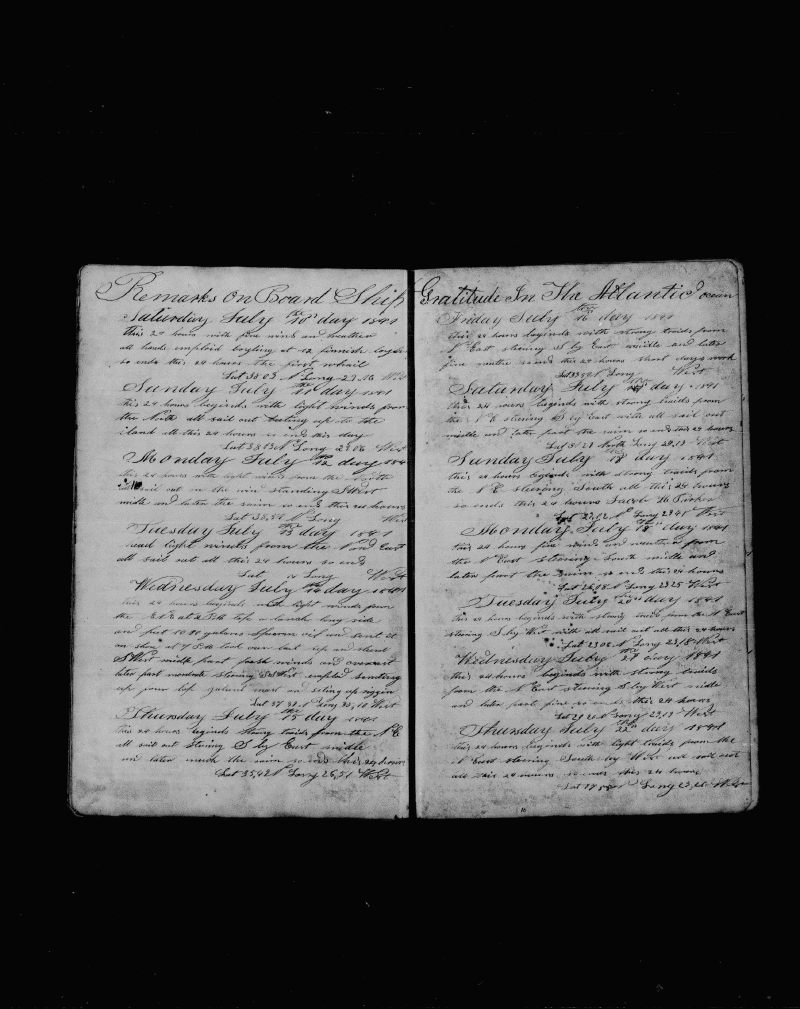 Remarks On Board Ship
Saturday July the 10 day 1841
this 24 hours with fine winds and weather
all hands emploid boyling at
so ends this 24 hours The first whail
Lat 38 03 N Long West
Sunday July the 11 day 1841
this 24 hours begins with light winds from
the North all sail out beating up to the
iland all this 24 hours so ends this day
Lat 38 13 N Long 28 06 West
Monday July the 12 day 184
this 24 hours with light winds from the North
all sail out on the win standing SWest
midle and later the saim so ends this 24 hours
Lat N Long West
Tuesday July the 13 day 1841
with light winds from the Nord East
all sail out all this 24 hours so ends
Lat N Long West
Wednesday July the 14 day 1841
this 24 hours begins with light winds from
the
and galons Sperm oil and sent it
on shore at 7 PM took our last up and steard
SWest midle part fresh winds and overcast
later part moderate stearing SSWest emploid sending
up your top galent mast and seting up riggin
Lat 37 N Long West
Thursday July the 15 day 1841
this 24 hours begins strong traids from the N E
all sail out stearing S by East midle
and later much the saim so ends this 24 hours
Lat 35,42 N Long 26,51 West
Gratitude In The Atlantic ocean
Friday July the 16 day 1841
this 24 hours begins with strong traids from
N East stearing S by East midle and later
fine wether so ends this 24 hours short days work
Lat N Long West
Saturday July the 17 day 1841
this 24 hours begins with strong traids from
the N E stearing S by East with all sail out
midle and later part the saim so ends this 24 hours
Lat 31 21 North Long 29,17 West
Sunday July the 18 day 1841
this 24 hours begins with strong traids from
the N E stearing South all this 24 hours
so ends this 24 hours Jacob
Lat N Long West
Monday July the day 1841
this 24 hours fine winds and weather from
the N East stearing South midle and
later part the saim so ends this 24 hours
Lat N Long 2325 West
Tuesday July the 20 day 1841
this 24 hours begins with strong traids from the N East
stearing S by West with all sail out all this 24 hours
Lat 2306 N Long 23,18 West
Wednesday July the 21 day 1841
this 24 hours begins with strong traids
from the N East stearing S by West midle
and later part fine so ends this 24 hours
Lat N Long 23,19 West
Thursday July the 22 day 1841
this 24 hours begins with light traids from the
N East stearing South by West all sail out
all this 24 hours so ends this 24 hours
Lat 17 N Long West